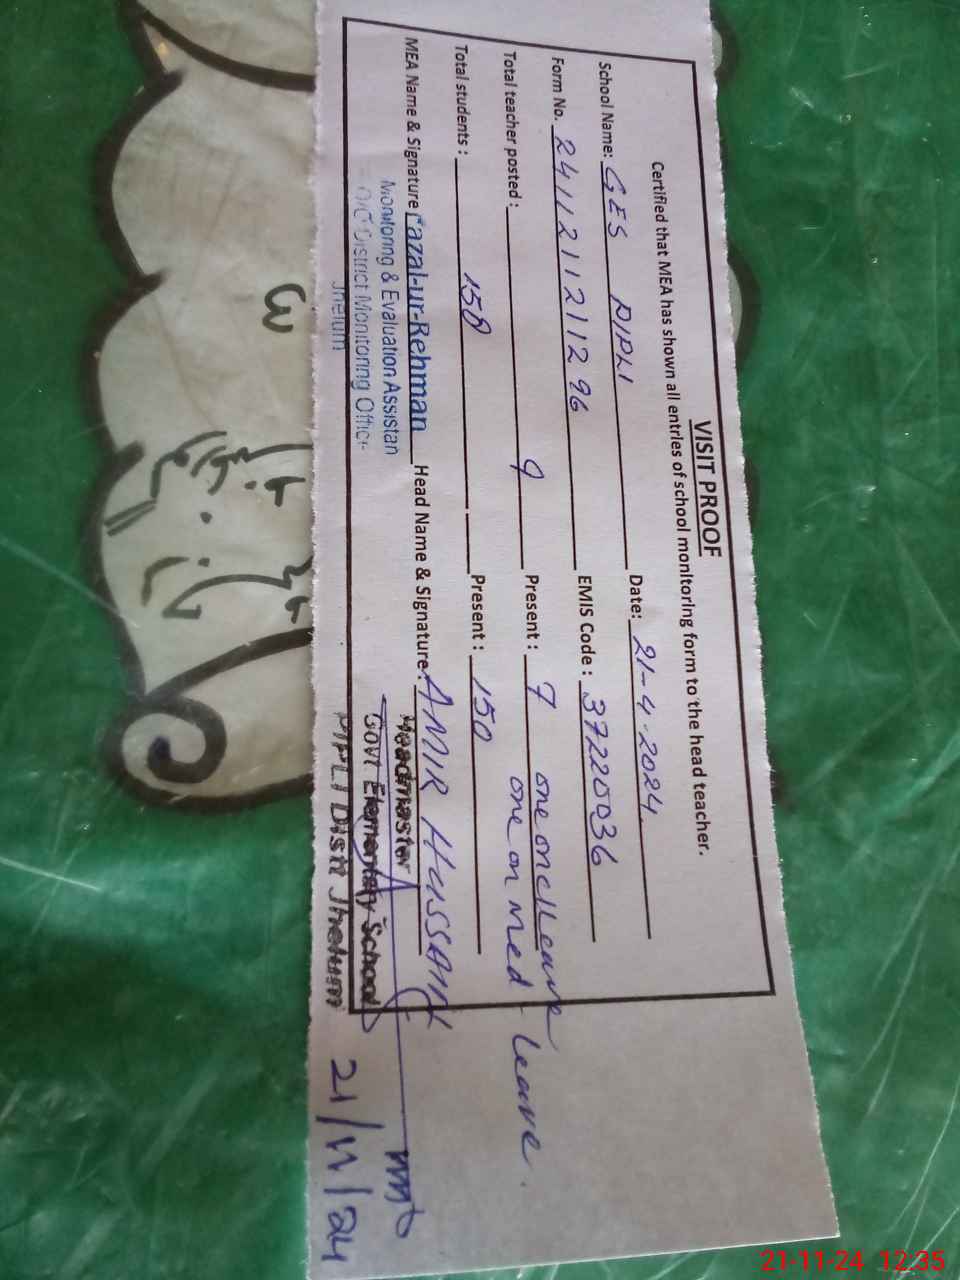 VISIT PROOF
Certified that MEA has shown all entries of school monitoring form to the head teacher.
School Name: GES PIPLI Date: 21-4-2024
Form No. 241121121129 6 EMIS Code: 37220036
Total teacher posted: 9 Present: 7 one on cLeave
one on med leave.
Total students: 158 Present: 150
MEA Name & Signature Fazal-ur-Rehman Head Name & Signature: AMIR HUSSAIN
Monitoring & Evaluation Assistan
O/O District Monitoring Office
Jhelum
Headmaster
Govt Elementary School
PIPLI Distt Jhelum
21/11/24
21-11-24 12:35